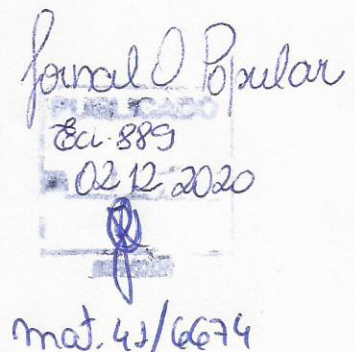 Jornal O Popular
PUBLICADO
Ed. 889
02 12 2020
mat. 41/6674